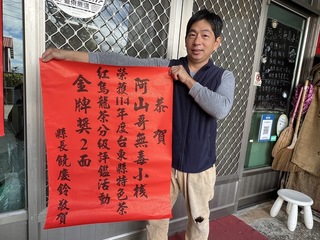 恭賀
阿山哥無毒小棧
榮獲114年度台東縣特色茶
紅烏龍茶分級評鑑活動
金牌獎2面
縣長饒慶鈴敬賀